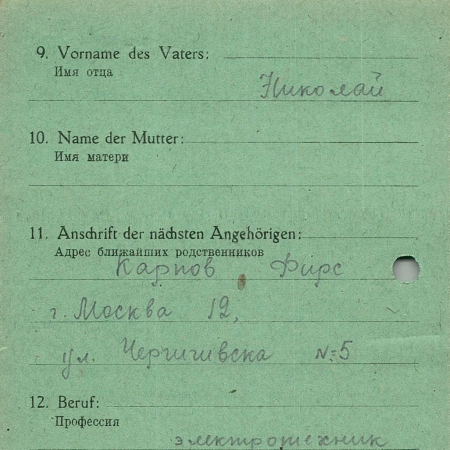 9. Vorname des Vaters:
Имя отца
Николай
10. Name der Mutter:
Имя матери
11. Anschrift der nächsten Angehörigen:
Адрес ближайших родственников
Карпов Фирс
г. Москва 12,
ул. №5
12. Beruf:
Профессия
электротехник